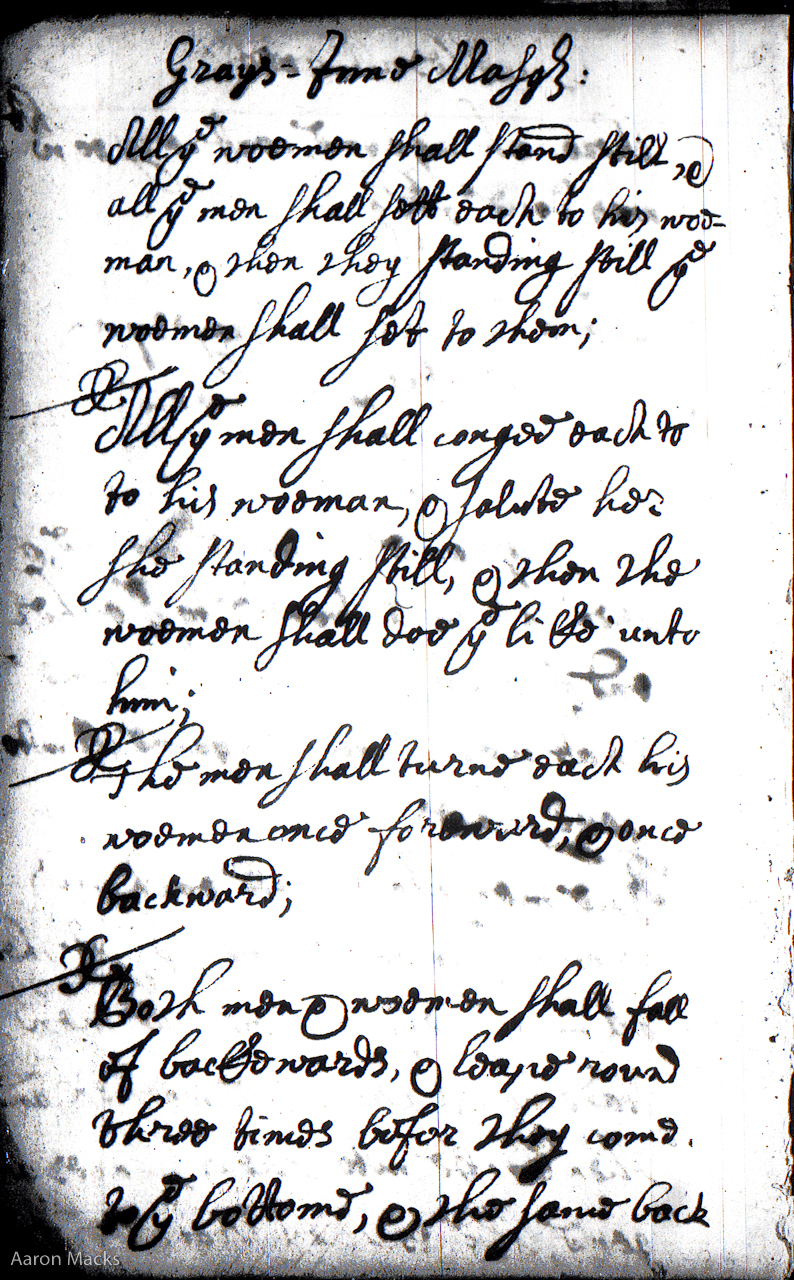 Grays-Inne Masqz:
All ye woemen shall stand still, &
all ye men shall sett each to his woe-
man, & then they standing still ye
woemen shall set to them;
All ye men shall congee each to
to his woeman, & salute her
she standing still, & then the
woemen shall doe ye like unto
him;
The men shall turne each his
woemen once forward, & once
backward;
Both men & woemen shall fall
of backewards, & leape round
three times befor they come
to ye bottome, & the same back
Aaron Macks